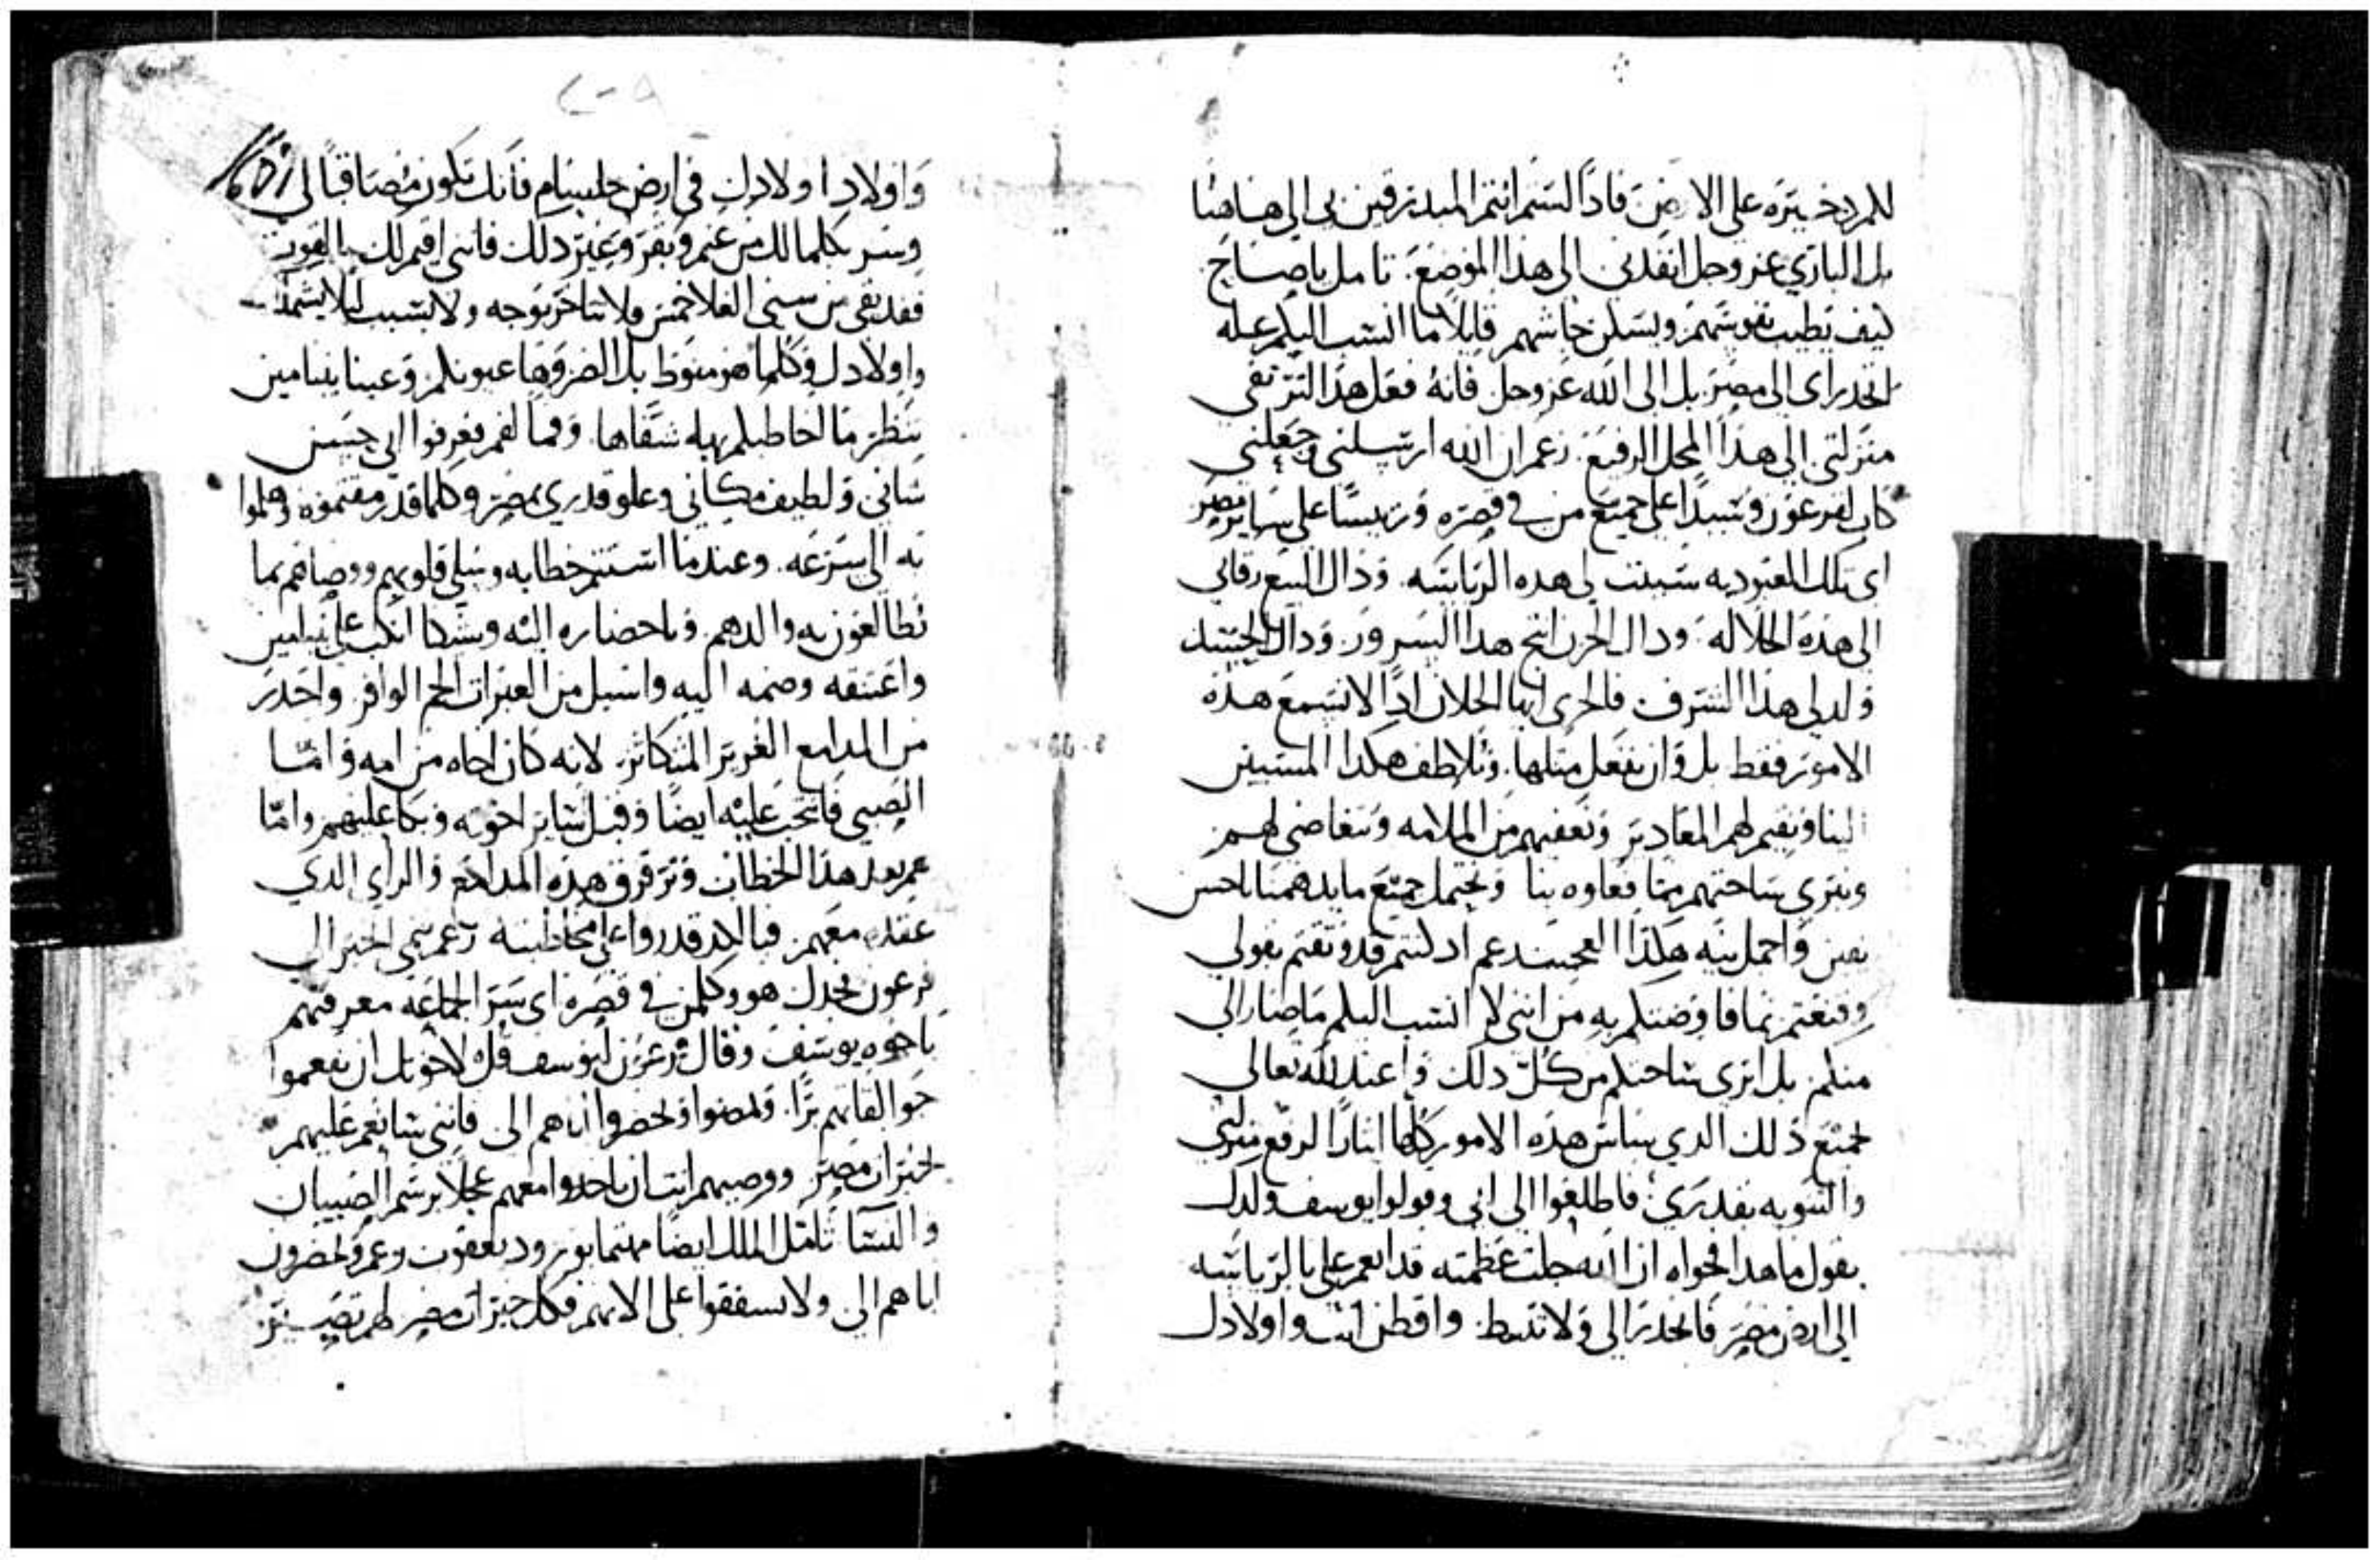 للم ذخيره على الارض فاذًا لستم انتم المبدرقين لي الى هاهنا
بل الباري عز وجل انفدني الى هذا الموضع. تامل ياصاح
كيف تطيب نفوسهم ويسكن جاشهم قايلاً ما انسب اليكم عله
انحداري الى مصر بل الى الله عز وجل فانهُ فعل هذا لترتقي
منزلتي الى هذا المحل الرفيع. زعم ان الله ارسلني وجعلني
كاب لفرعون وسيدا على جميع من في قصره وريسًا على ساير مصر
اي تلك العبوديه سببت لي هذه الرياسه. وذاك البيع رقاني
الى هذه الجلاله. وداك الحزن انتج هدا السرور. وداك الحسد
ولد لي هذا الشرف فالحري ايها الخلان اذًا الا نسمع هذه
الامور فقط بل وان نفعل مثلها. ونلاطف هكدا المسيين
الينا ونقيم لهم المعادير ونعفيهم من الملامه ونتغاضى لهم
ونبري ساحتهم مما فعلوه بنا ونحتمل جميع ما يدهمنا باحسن
يقين واجمل نيه هكذا العجيب زعم اد كنتم قد وثقتم بقولي
وقنعتم بما فاوضتكم به من انني لا انسب اليكم ما صار الي
منكم بل ابري ساحتكم من كل دلك واعند لله تعالى
لجميع ذلك الدي ساس هذه الامور كلها ايثارًا لرفع منزلتي
والتنويه بقدري. فاطلعوا الى ابي وقولوا يوسف ولدك
يقول ما هدا فحواه ان الله جلت عظمته قد انعم علي بالرياسه
الى ارض مصر فانحدر الي ولا تبط واقطن انت واولادك
واولاد اولادك في ارض جاسام فانك تكون مصاقبًا لي
وسر بكلما لك من غنم وبقر وغير دلك فانني اقيم لك بالقوت
فقد بقي من سني الغلا خمس ولا تتاخر بوجه ولا بسبب ليلا
واولادك وكلما هو منوط بك الضر وها عيونكم وعينا بنيامين
تنظر ما اخاطبكم به شفاها. وفما لفم فعرفوا ابي حسن
شاني ولطيف مكاني وعلو قدري بمصر وكلما قد رمقتموه وهلموا
به الي سرعه. وعندما استتم خطابه وسلى قلوبهم ووصاهم بما
يطالعون به والدهم وباحضاره اليه وشيكا انكب على بنيامين
واعتنقه وضمه اليه واسبل من العبرات الجم الوافر واحدر
من المدامع الغزير المتكاثر. لانه كان اخاه من امه واما
الصبي فانتحب عليه ايضًا وقبل ساير اخوته وبكا عليهم واما
عم بعد هذا الخطاب وترقرق هذه المدامع والراي الدي
عقده معهم فبالكد قدروا على مخاطبته زعم نمي الخبر الى
فرعون بجدل هو وكلمن في قصره اي سر الجماعه معرفتهم
باخوه يوسف وقال فرعون ليوسف قل لاخوتك ان يفعموا
جوالقاتهم برًّا. ويمضوا ويحضروا اباهم الي فانني سانعم عليهم
بخيرات مصر ووصيهم انت ان ياخدوا معهم عجلاً برسم الصبيان
والنسا تامل الملك ايضا مهتما بورود يعقوب زعم ويحضرون
اباهم الي ولا يشفقوا على الاتهم فكل خيرات مصر لهم تصير